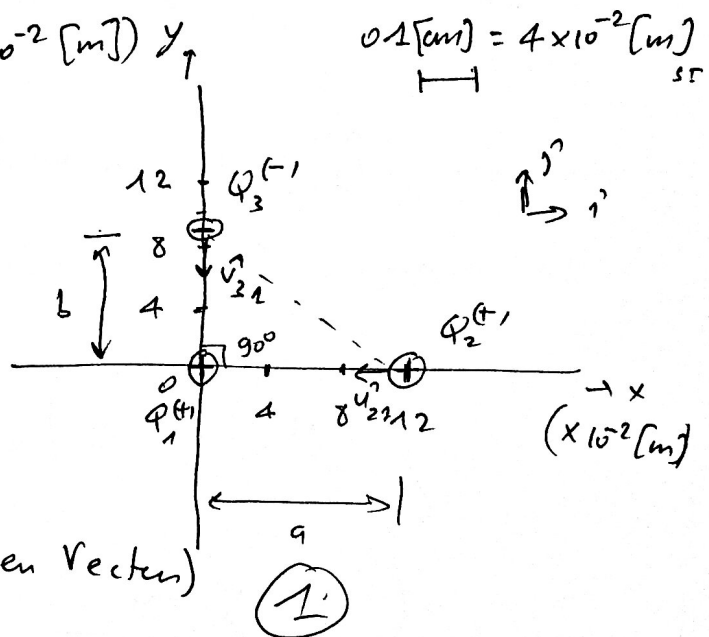 0^-2 [m]) y
01[cm] = 4×10^-2 [m]
SI
12 Q3^(-)
ĵ
î
8
b
û31
4
90°
Q2^(+)
0
Q1^(+)
4
8
û21
12
→ x
(×10^-2 [m]
a
en Vecteu)
1